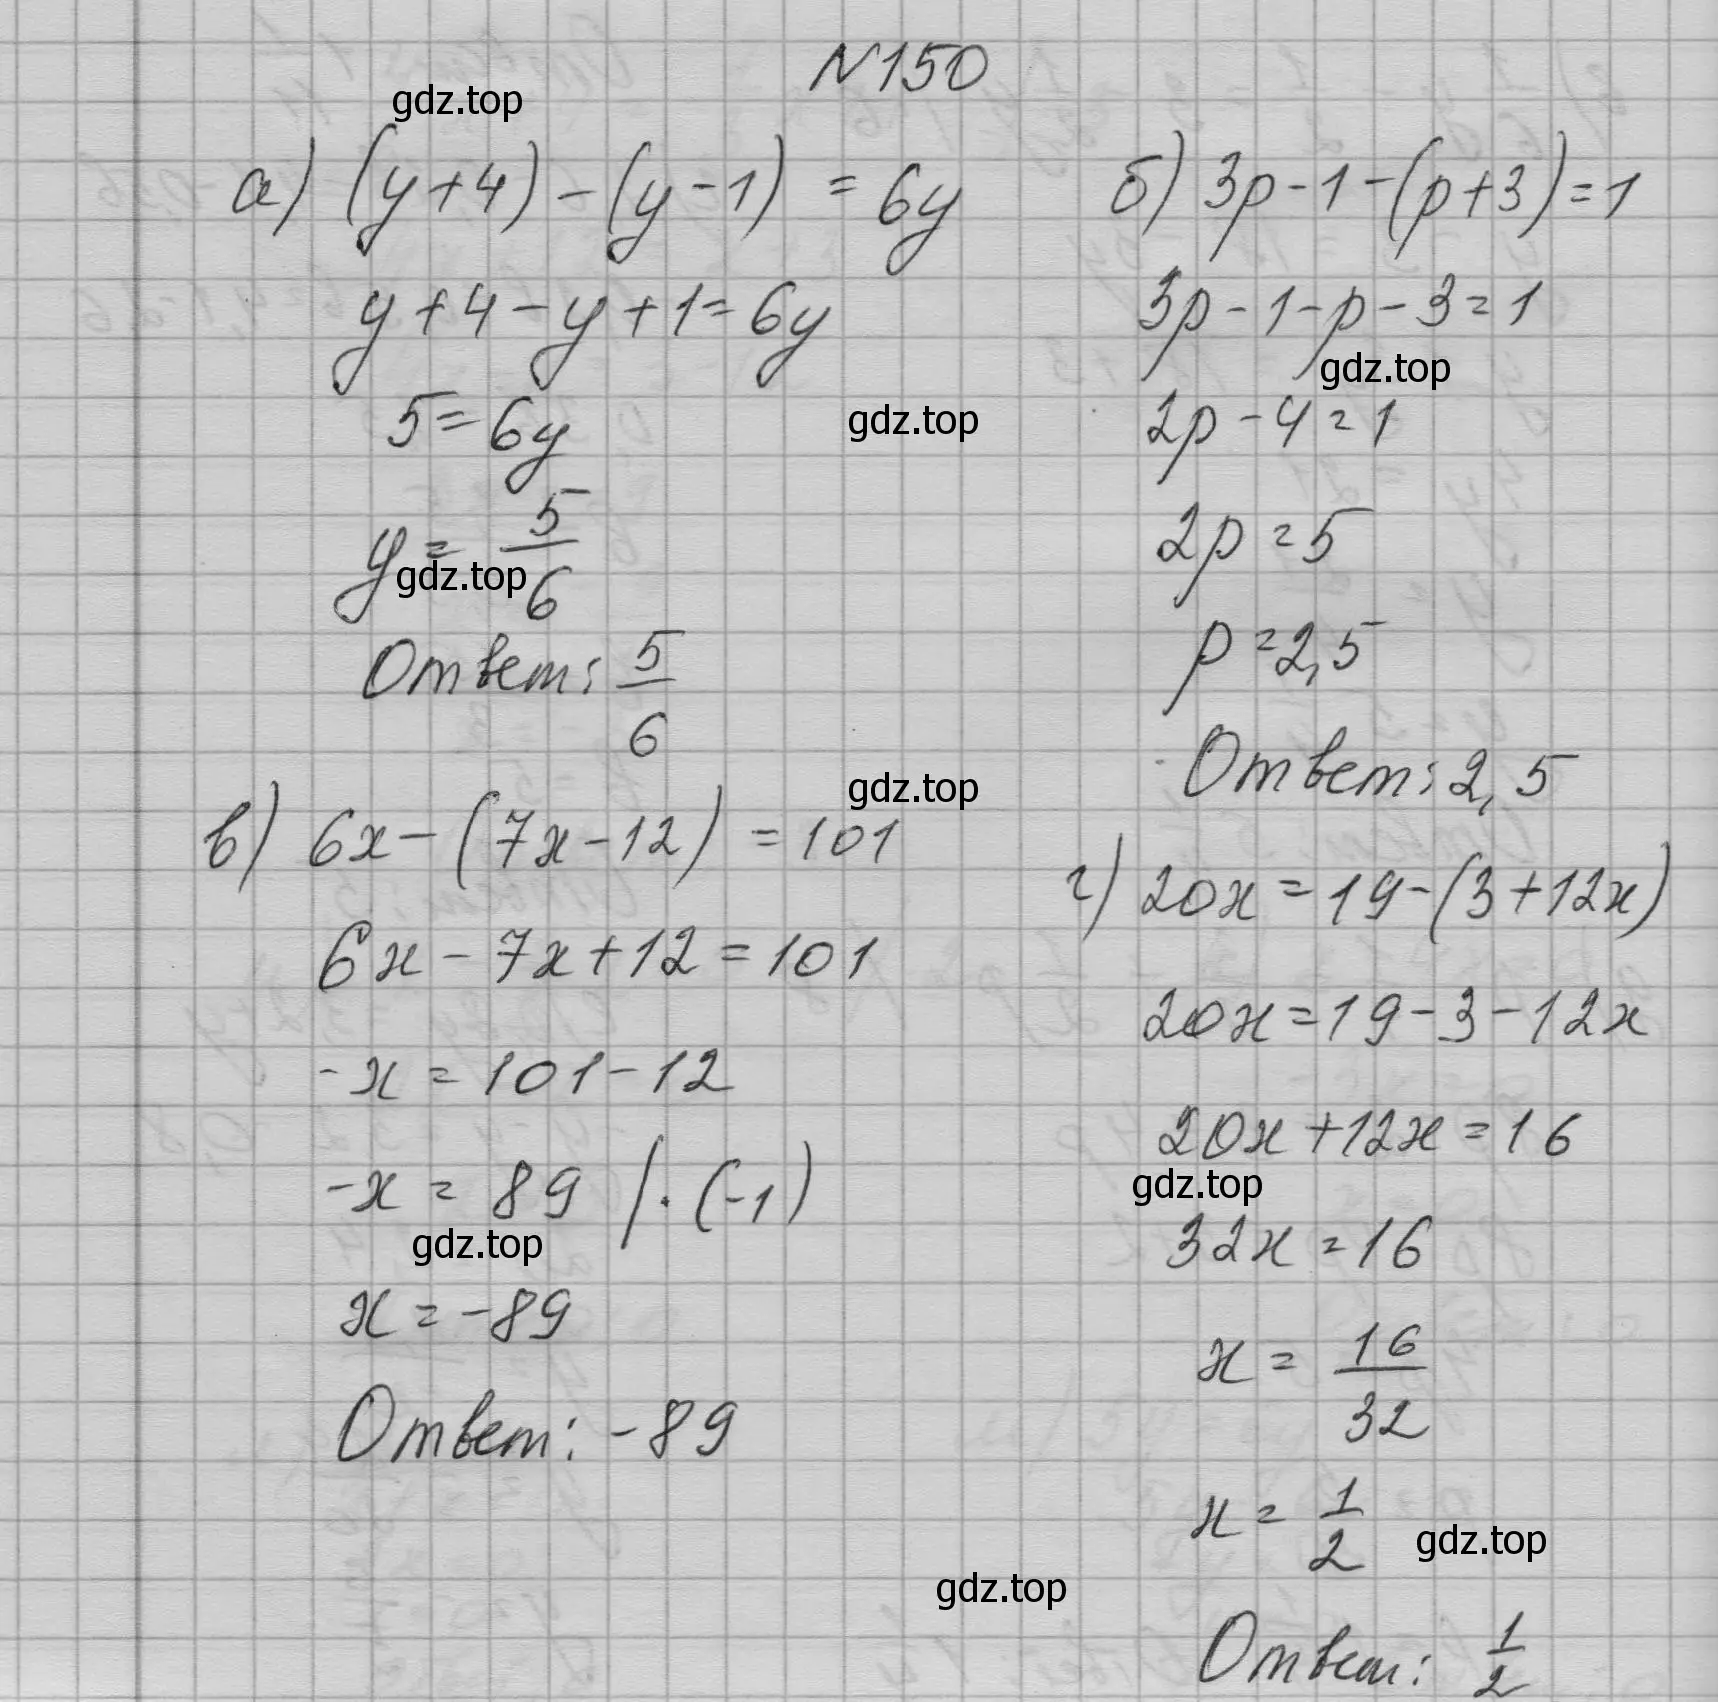 N150
а) (y+4)-(y-1) = 6y
y+4-y+1=6y
5=6y
y= 5/6
Ответ: 5/6
б) 3p-1-(p+3)=1
3p-1-p-3=1
2p-4=1
2p=5
p=2,5
Ответ: 2,5
в) 6x-(7x-12)=101
6x-7x+12=101
-x=101-12
-x=89 /·(-1)
x=-89
Ответ: -89
г) 20x=19-(3+12x)
20x=19-3-12x
20x+12x=16
32x=16
x= 16/32
x= 1/2
Ответ: 1/2
gdz.top
gdz.top
gdz.top
gdz.top
gdz.top
gdz.top
gdz.top
gdz.top
gdz.top